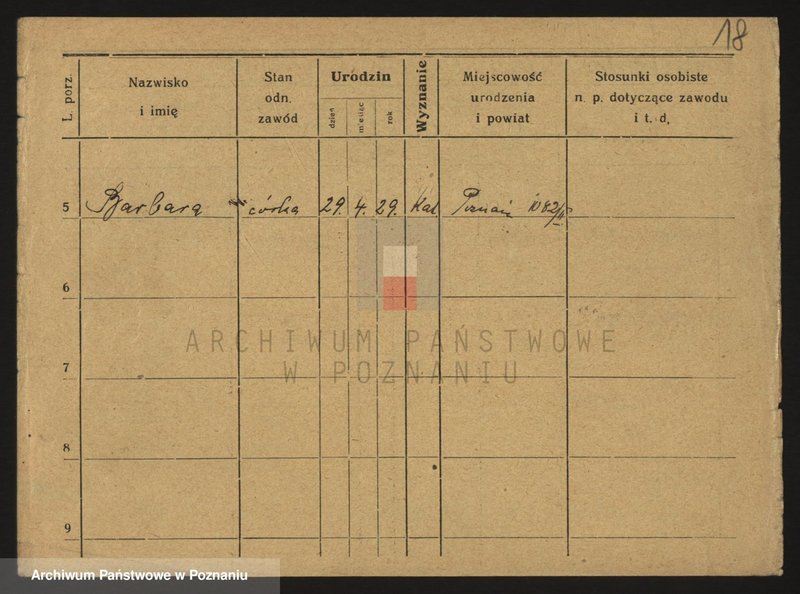 18
L. porz.
Nazwisko
i imię
Stan
odn.
zawód
Urodzin
dzień
miesiąc
rok
Wyznanie
Miejscowość
urodzenia
i powiat
Stosunki osobiste
n. p. dotyczące zawodu
i t. d,
5 Barbara córka 29. 4. 29. Kat Poznań
6
ARCHIWUM PAŃSTWOWE
W POZNANIU
7
8
9
Archiwum Państwowe w Poznaniu